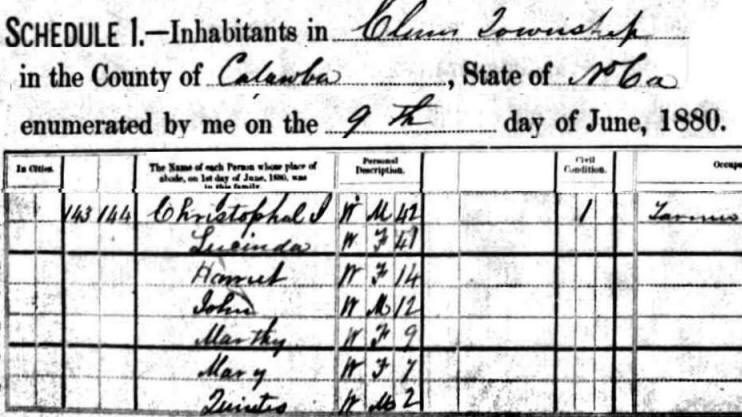 SCHEDULE 1.—Inhabitants in Clines Township
in the County of Catawba, State of No Ca
enumerated by me on the 9th day of June, 1880.
In Cities. The Name of each Person whose place of abode, on 1st day of June, 1880, was in this family. Personal Description. Civil Condition. Occupa
143 144 Christophal S W M 42 1 Farmer
Lucinda W F 41
Harriet W F 14
John W M 12
Marthy W F 9
Mary W F 7
W M 2